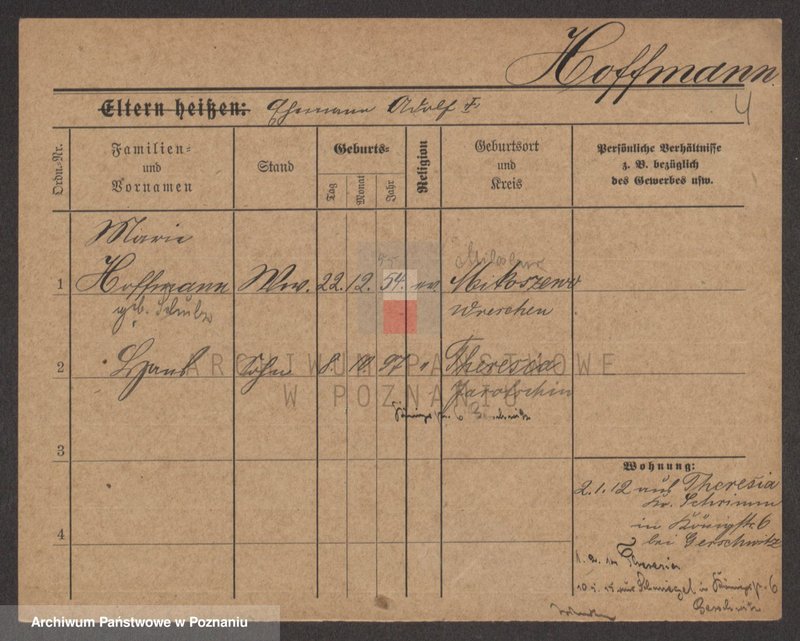 Hoffmann
Eltern heißen: Ehemann Adolf
4
Ordn.-Nr.
Familien- und Vornamen
Stand
Geburts-
Tag
Monat
Jahr
Religion
Geburtsort und Kreis
Persönliche Verhältnisse
z. B. bezüglich
des Gewerbes usw.
Marie
1 Hoffmann Wwe. 22. 12. 54. ev. Mikoszewo
geb. Schulz Wreschen
2 Hans Sohn 8. 10. 97 " Theresia
Jarotschin
3
4
Wohnung:
2.1.12 aus Theresia
Kr. Schrimm
in Königstr. 6
bei Gerschwitz
ARCHIWUM PAŃSTWOWE
W POZNANIU
Archiwum Państwowe w Poznaniu